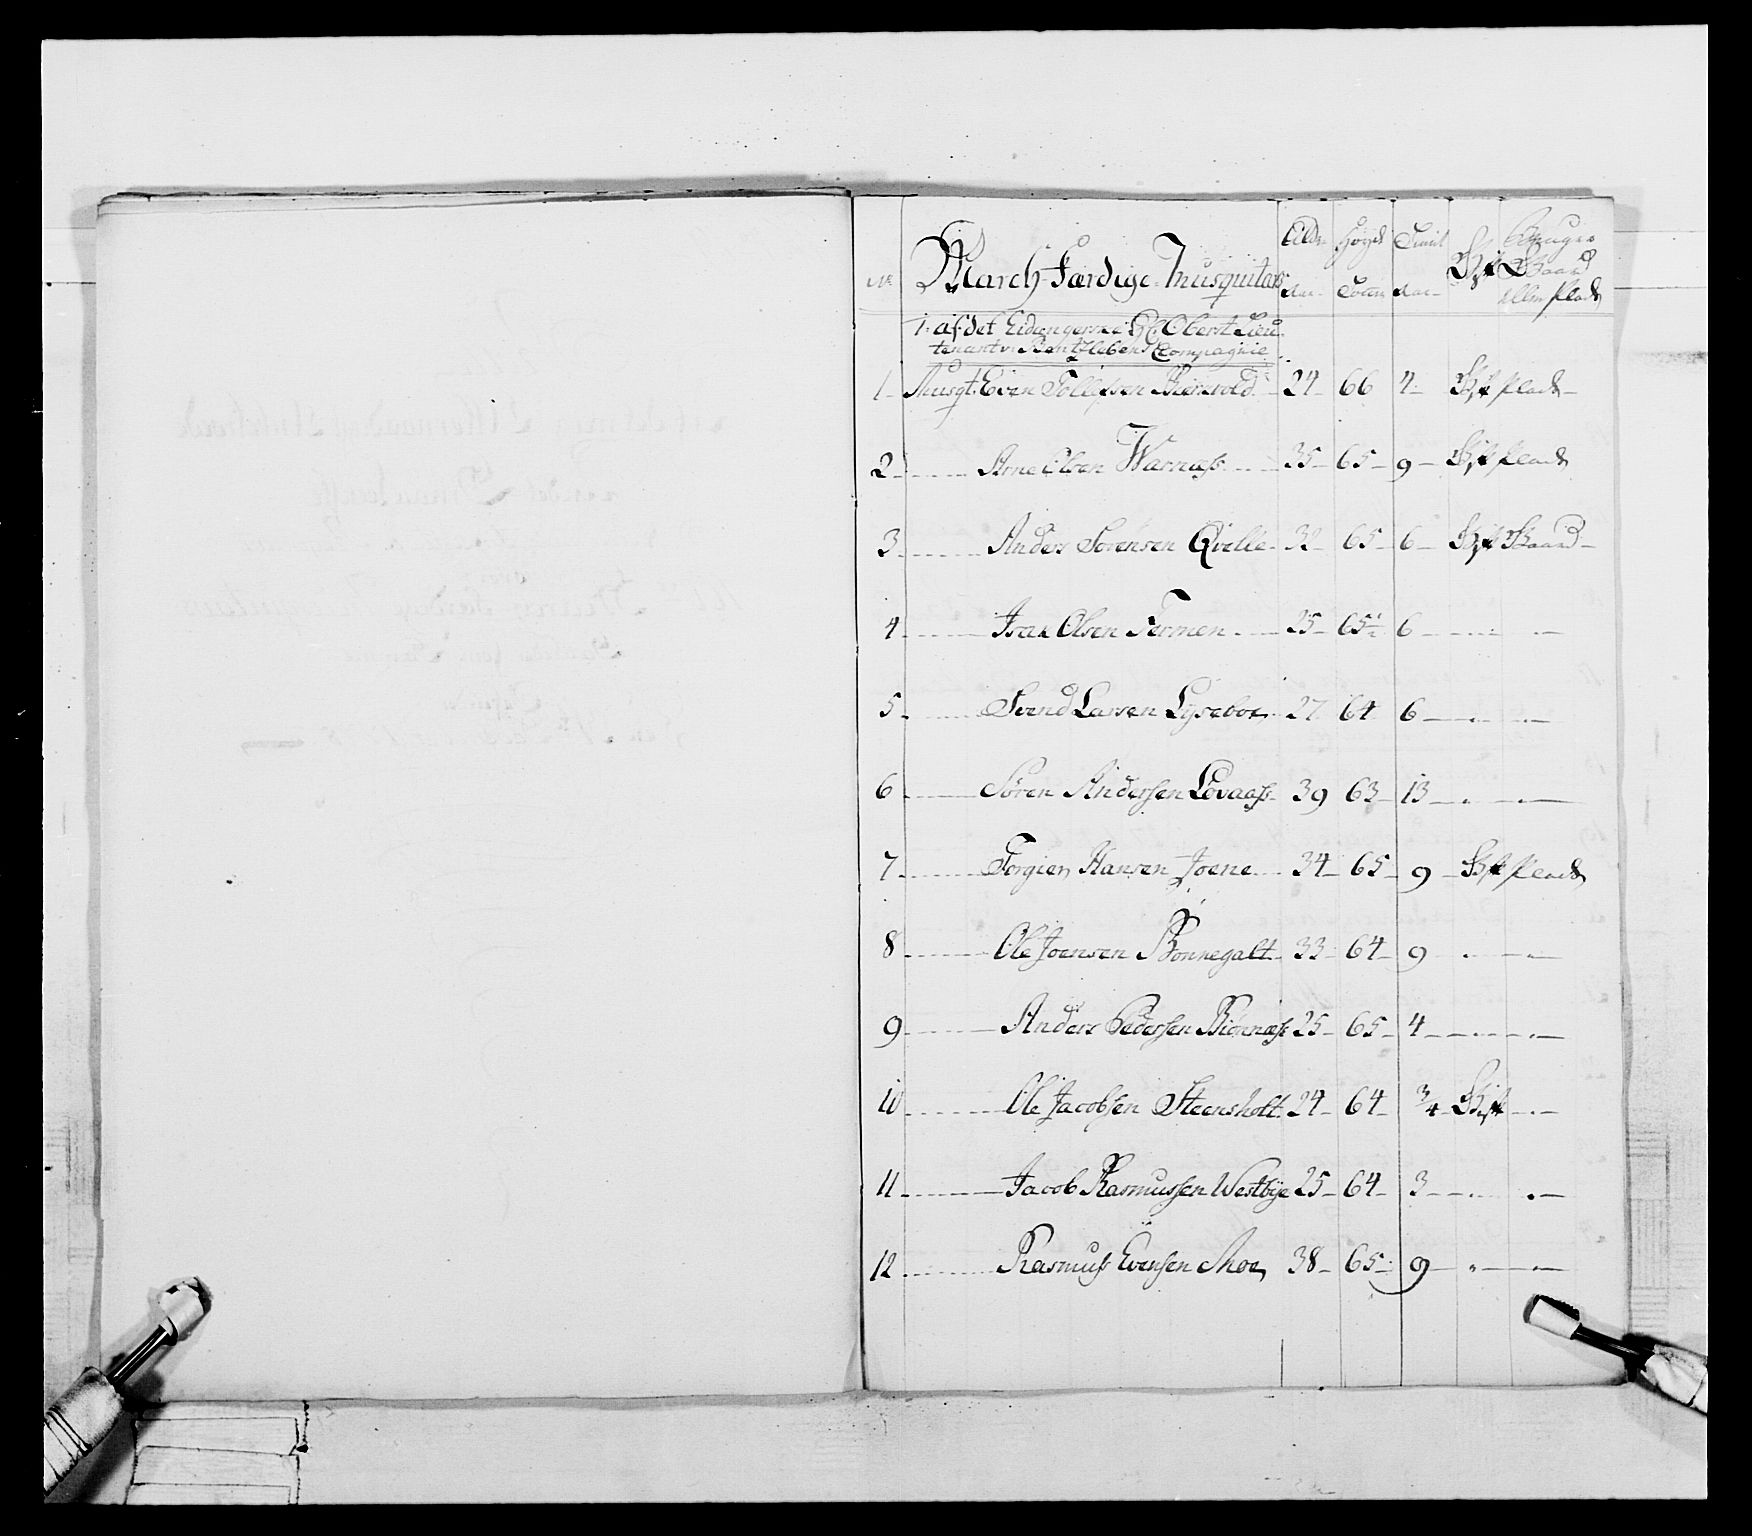 No March-Færdige Musquitairs Alder Aar Høyde Tomm Tienist Aar Gift Bruger Gaard eller Plads
1: af det Eidangerne H: Oberst Lieu
tenant v: Bentzlebens Compagnie
1 Musqt: Even Tollefsen Biønvold 24 66 4 Gift Plads
2 Arne Olsen Warnæss 35 65 9 Gift Plads
3 Anders Sørensen Qvelle 32 65 6 Gift Gaard
4 Isak Olsen Termen 25 65½ 6
5 Svend Larsen Lyseboe 27 64 6
6 Søren Andersen Lövaass 39 63 13
7 Torgier Hansen Joene 34 65 9 Gift Plads
8 Ole Joensen Bonnegalt 33 64 9
9 Anders Pedersen Biønnæss 25 65 4
10 Ole Jacobsen Steensholt 24 64 3/4 Gift
11 Jacob Rasmussen Westbye 25 64 3
12 Rasmus Evensen Moe 38 65 9